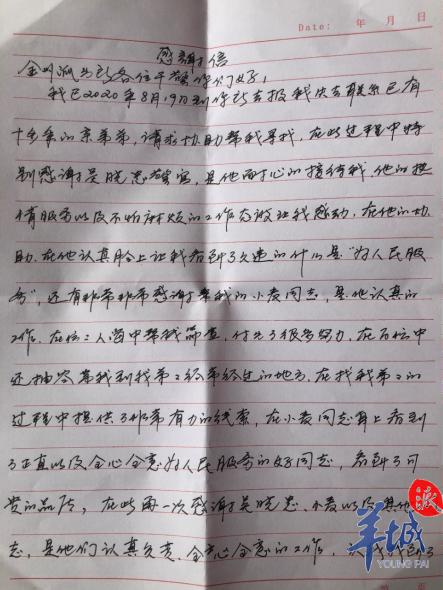 Date: 年 月 日
感谢信
金圳派出所各位干警你们好，
我已2020年8月19日到你所去报我失去联系已有
十多年的亲弟弟，请求协助帮我寻找，在此过程中特
别感谢吴晓忠警官，是他耐心的接待我，他的热
情服务以及不怕麻烦的工作态度让我感动，在他的协
助，在他认真脸上让我看到了久违的什么是“为人民服
务”，还有非常非常感谢帮我的小麦同志，是他认真的
工作，在 人海中帮我筛查，付出了很多努力，在百忙中
还抽空带我到我弟弟经常经过的地方，在找我弟弟的
过程中提供了非常有力的线索，在小麦同志身上看到
了正直以及全心全意为人民服务的好同志，看到了可
贵的品质，在此再一次感谢吴晓忠、小麦以及其他
志，是他们认真负责、全心全意的工作，
羊城派
YOUNG PAI